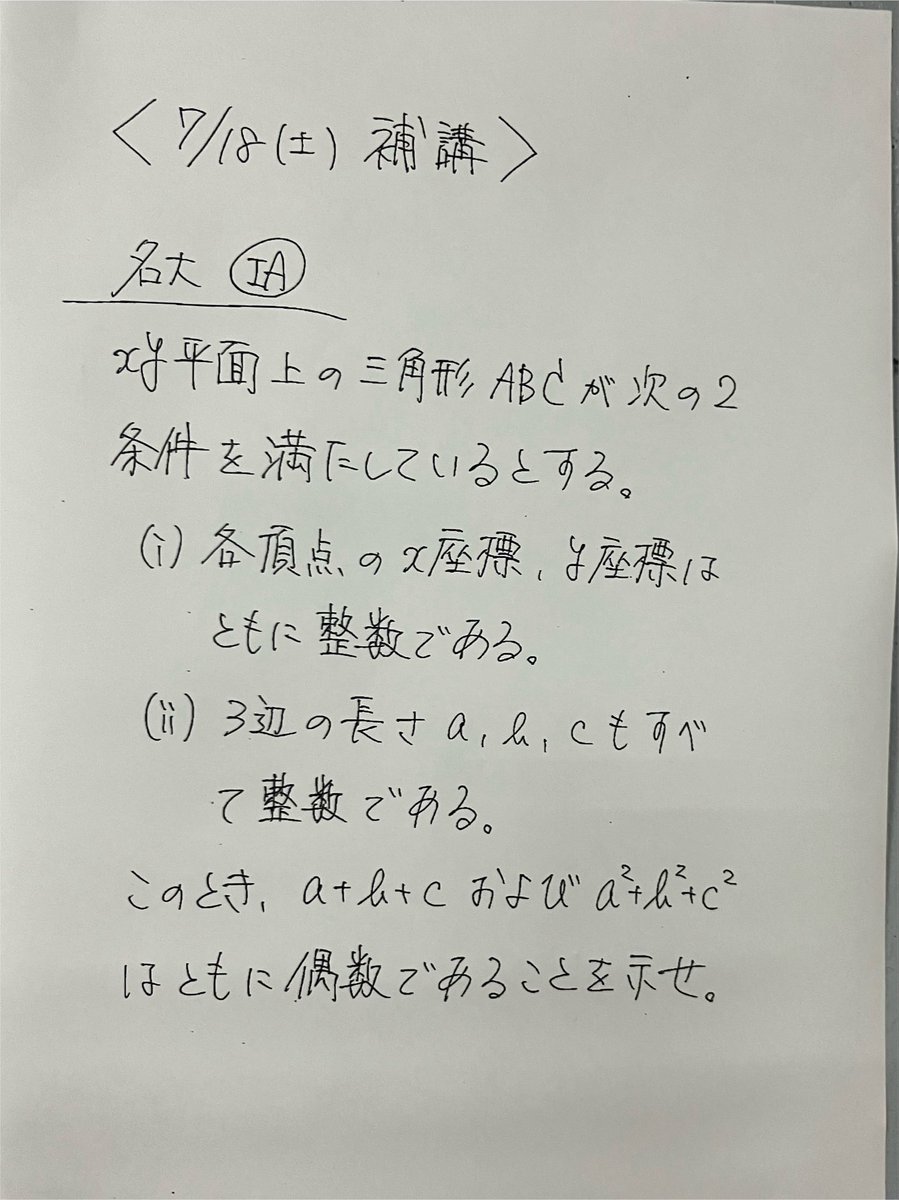 〈7/18(土) 補講〉
名大 IA
xy平面上の三角形ABCが次の2
条件を満たしているとする。
(i) 各頂点のx座標, y座標は
ともに整数である。
(ii) 3辺の長さ a, b, c もすべ
て整数である。
このとき, a+b+c および a²+b²+c²
はともに偶数であることを示せ。